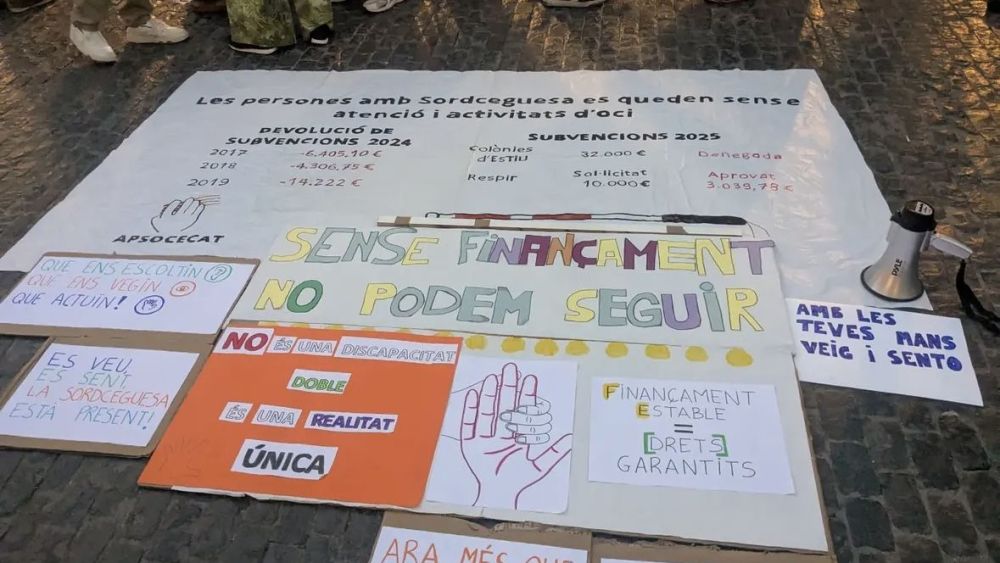 Les persones amb Sordceguesa es queden sense
atenció i activitats d'oci
DEVOLUCIÓ DE
SUBVENCIONS 2024
2017 -6.405,10 €
2018 -4.306,75 €
2019 -14.222 €
APSOCECAT
SUBVENCIONS 2025
Colònies
d'ESTIU
32.000 €
Denegada
Respir
Sol·licitat
10.000 €
Aprovat
3.039,78 €
SENSE FINANÇAMENT
NO PODEM SEGUIR
QUE ENS ESCOLTIN
QUE ENS VEGIN
QUE ACTUÏN!
ES VEU,
ES SENT,
LA SORDCEGUESA
ESTÀ PRESENT!
NO ÉS UNA DISCAPACITAT
DOBLE
ÉS UNA REALITAT
ÚNICA
FINANÇAMENT
ESTABLE
=
[DRETS]
GARANTITS
PYLE
AMB LES
TEVES MANS
VEIG I SENTO
ARA MÉS QUE